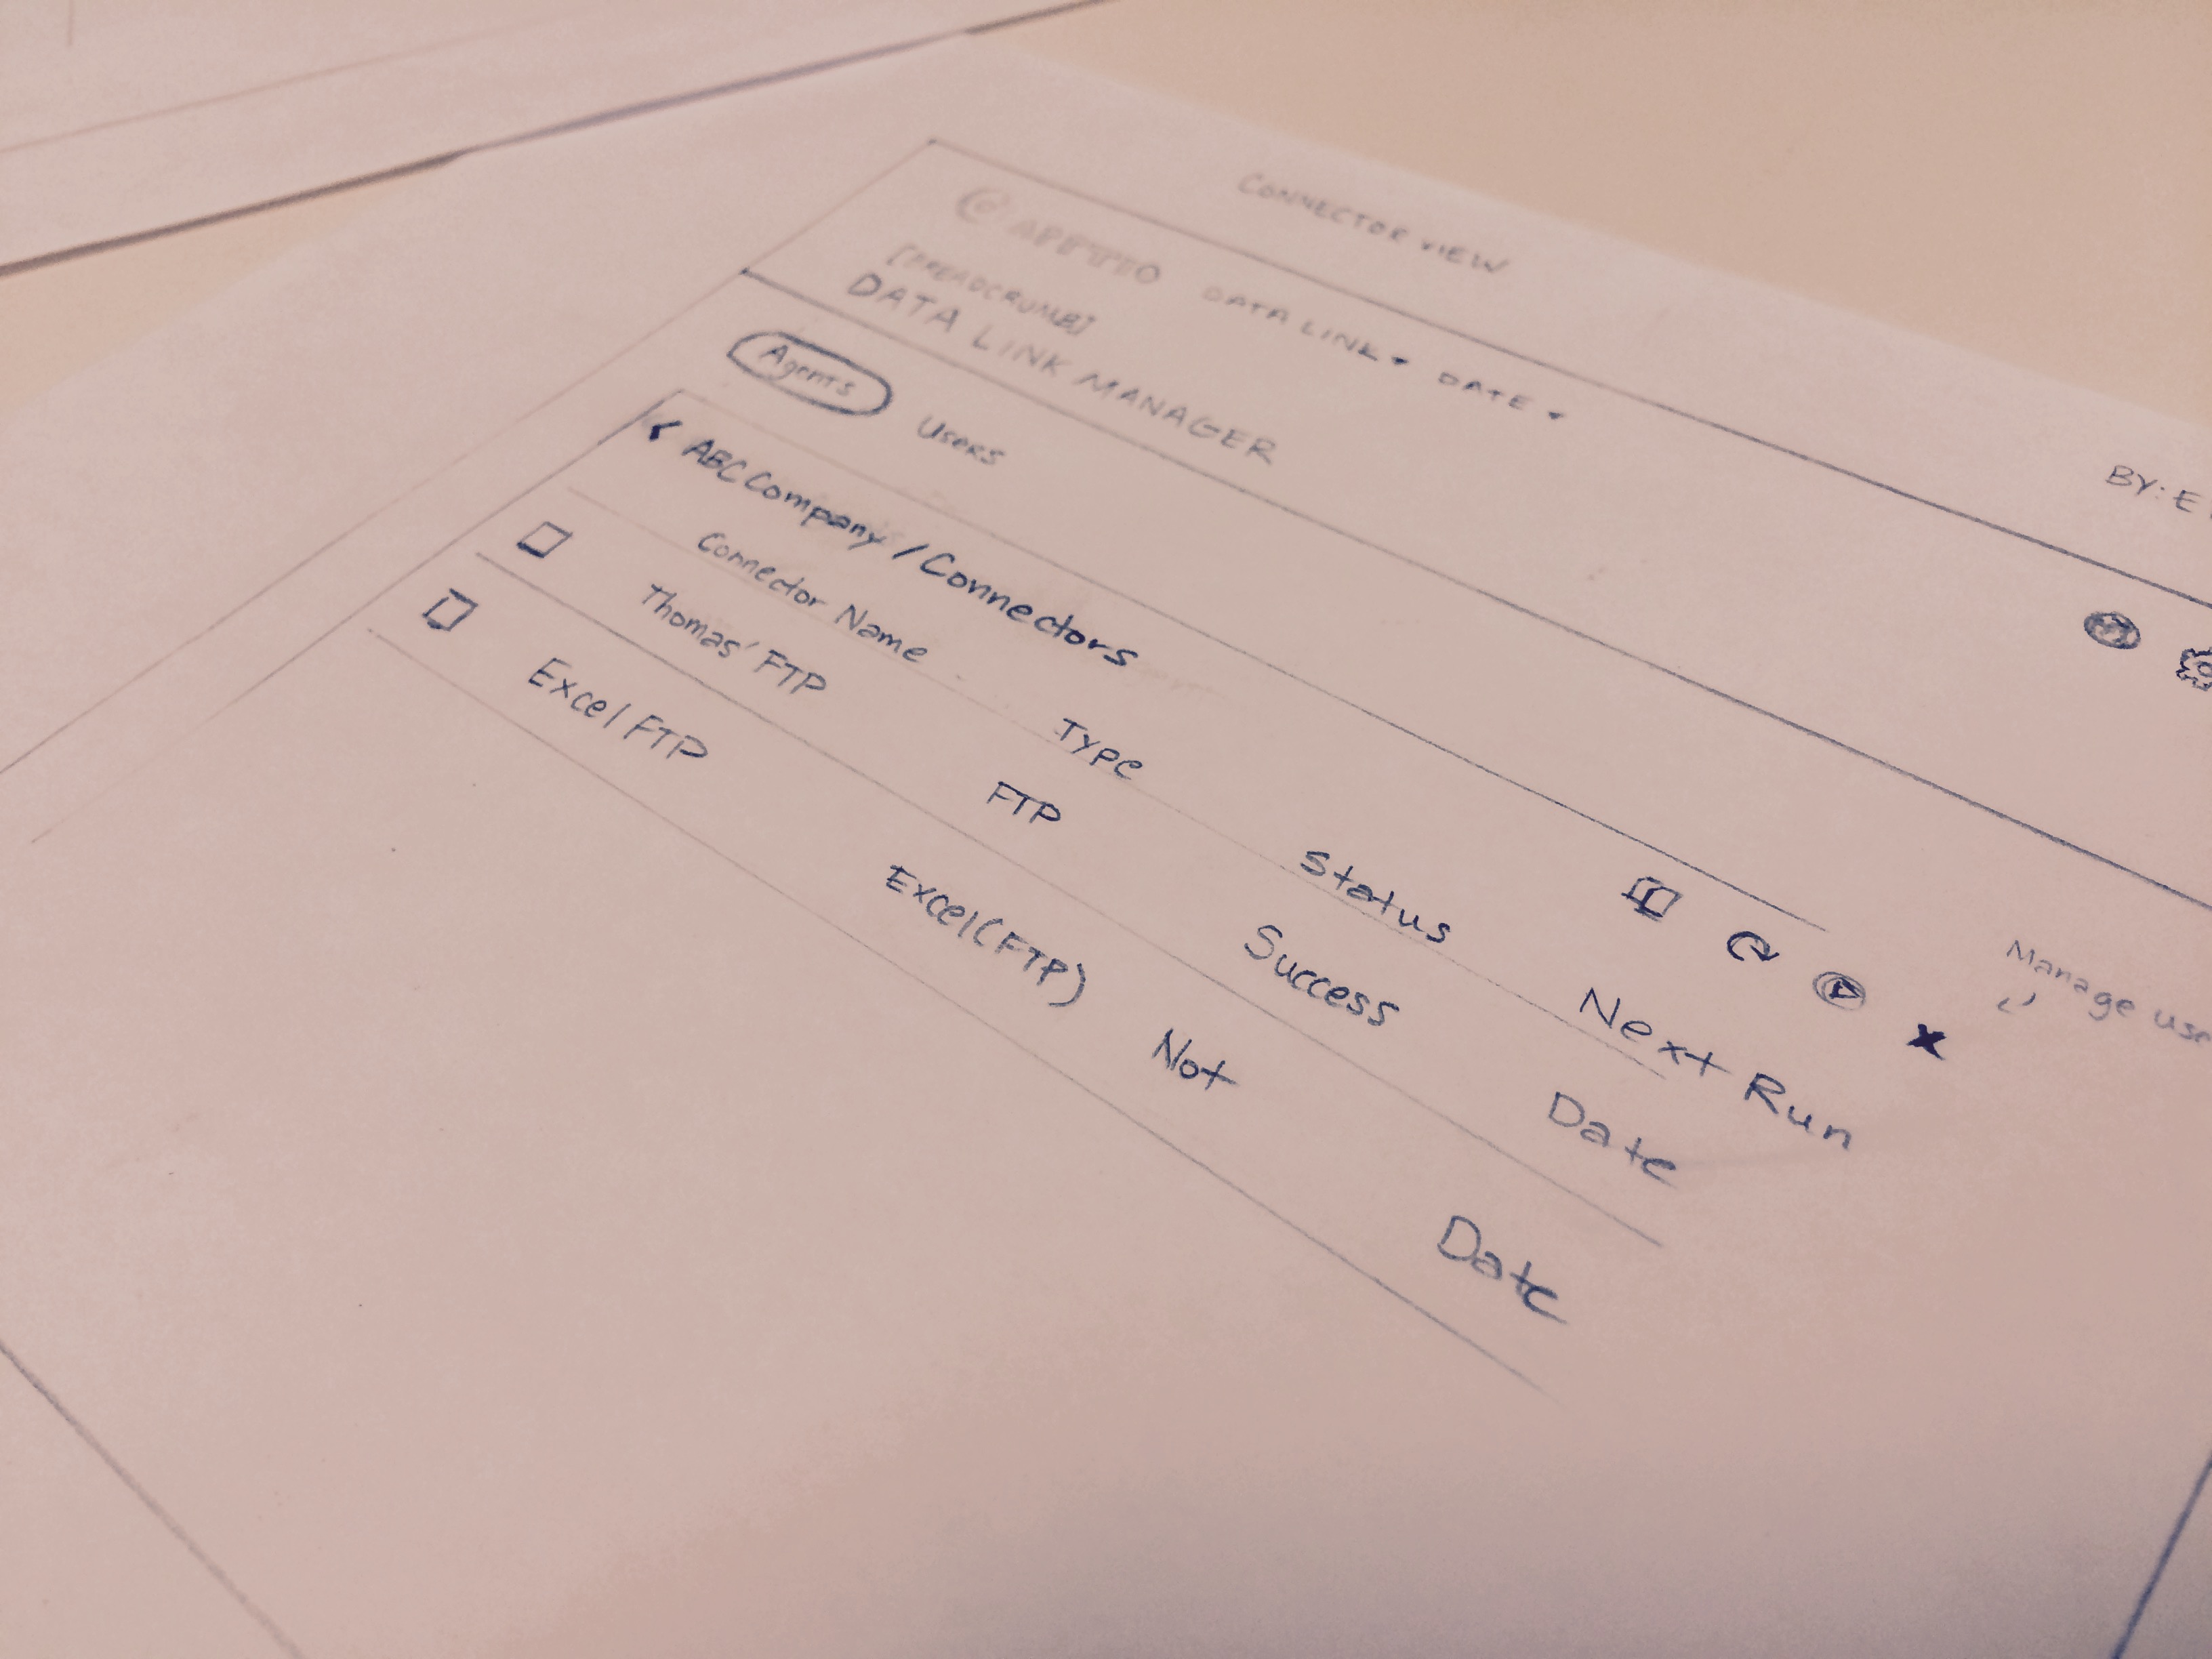 CONNECTOR VIEW
BY: E
APPTIO DATA LINK DATE
[BREADCRUMB]
DATA LINK MANAGER
Agents Users
Manage use
< ABC Company / Connectors
Connector Name Type Status Next Run
Thomas' FTP FTP Success Date
Excel FTP Excel (FTP) Not Date